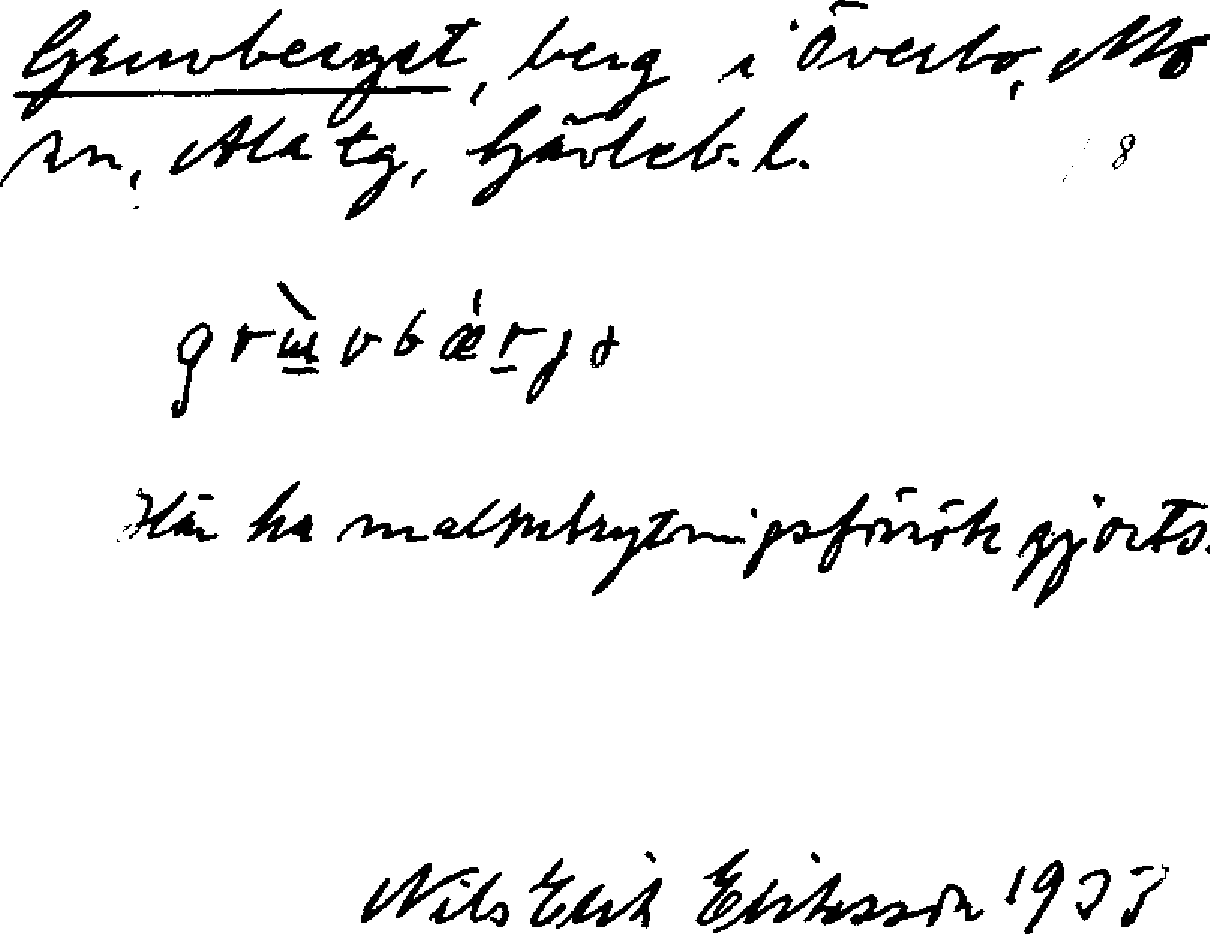 Gruvberget, berg i Överbo, Mo
sn, Ala tg, Gävleb. l.
8
Här ha malmbrytningsförsök gjorts.
Nils Erik Eriksson 1933